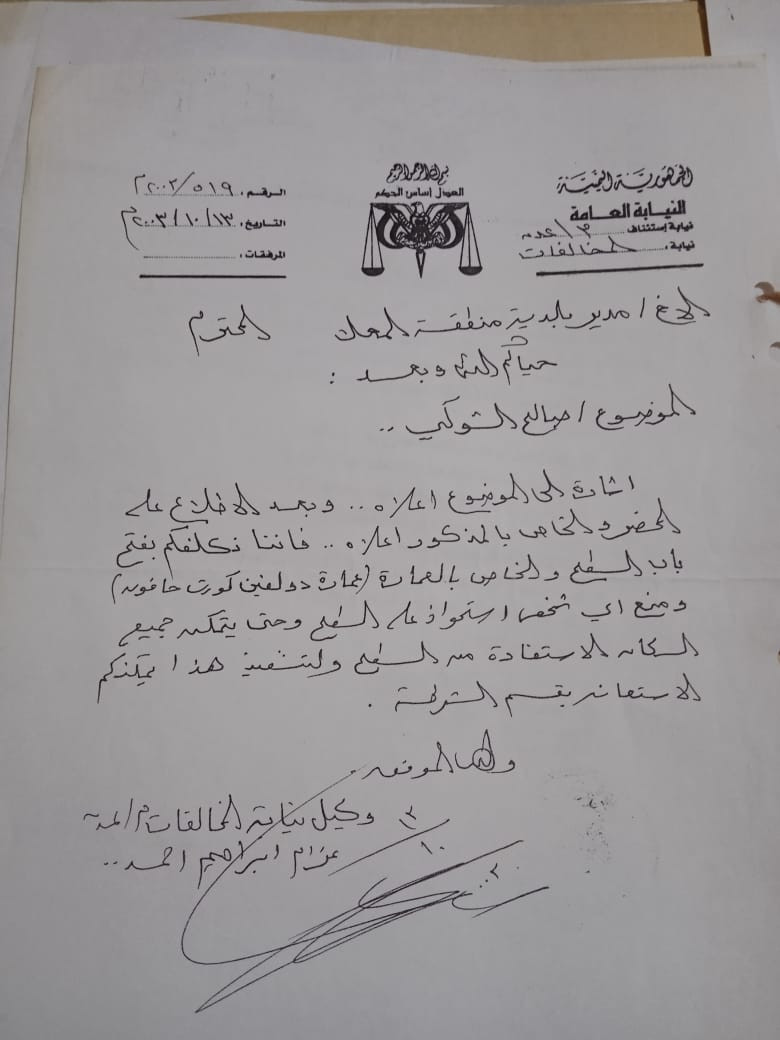 الجمهورية اليمنية
النيابة العامة
نيابة إستئناف: م/عدن
نيابة: المخالفات
بسم الله الرحمن الرحيم
العدل أساس الحكم
الرقم: ٥١٩/٢٠٠٣م
التاريخ: ١٣/١٠/٢٠٠٣م
المرفقات:
الاخ/ مدير بلدية منطقة المعلا المحترم
حياكم الله وبعد:
الموضوع/ صالح الشوكي..
اشارة الى الموضوع اعلاه.. وبعد الاطلاع على
المحضر والخاص بالمذكور اعلاه.. فاننا نكلفكم بفتح
باب السطح والخاص بالعمارة (عمارة دولفين كورت حافون)
ومنع اي شخص استحواذ على السطح وحتى يتمكن جميع
السكان الاستفادة من السطح ولتنفيذ هذا يمكنكم
الاستعانه بقسم الشرطة.
والله الموفق..
وكيل نيابة المخالفات م/
عزام ابراهيم احمد..
١٣
١٠